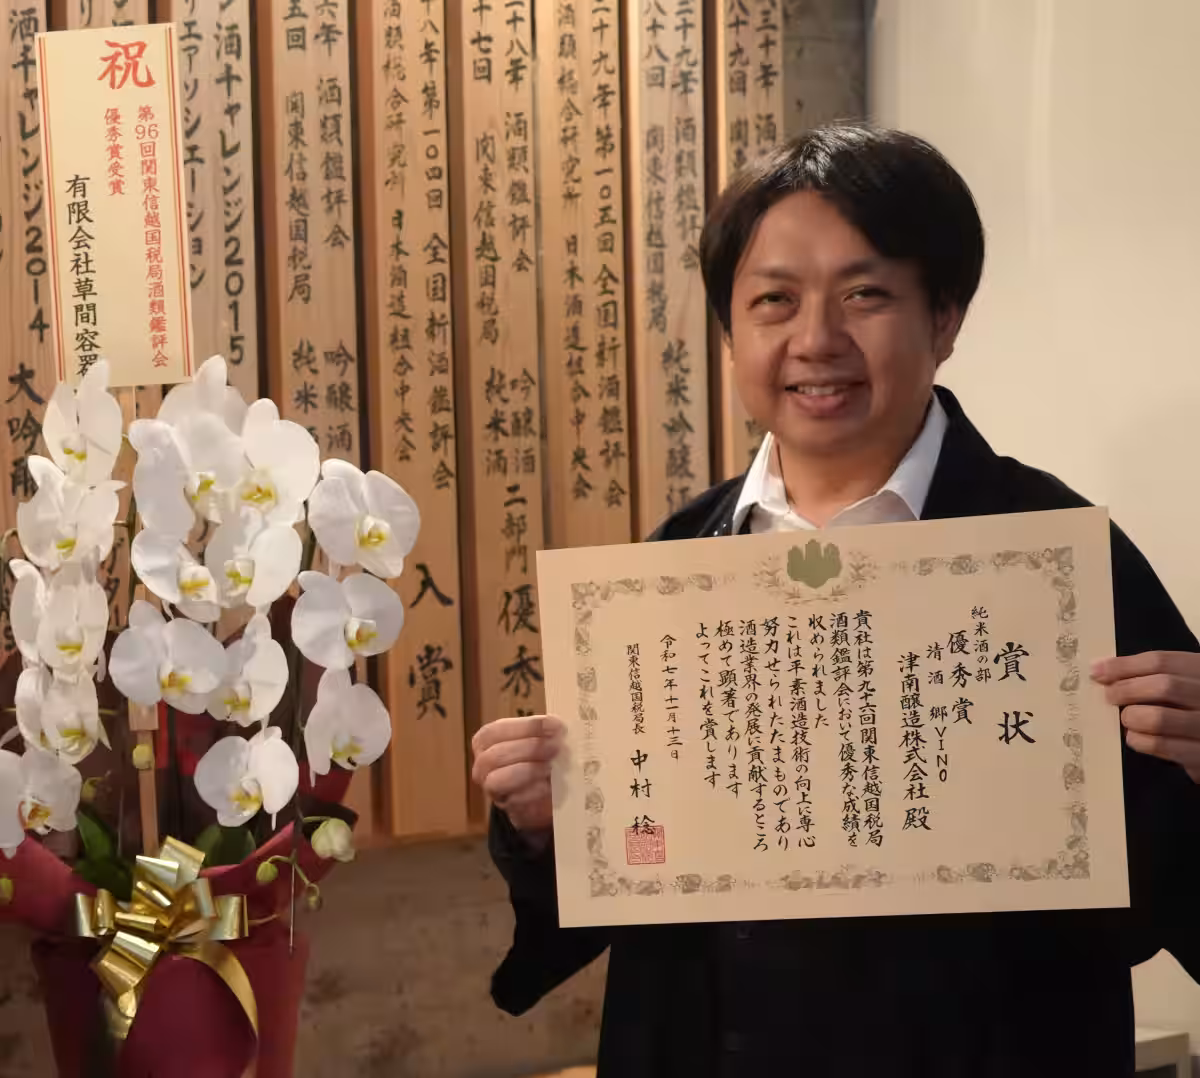 祝
第96回関東信越国税局酒類鑑評会
優秀賞受賞
有限会社草間容器
賞状
純米酒の部
優秀賞
清酒 郷VINO
津南醸造株式会社 殿
貴社は第九十六回関東信越国税局
酒類鑑評会において優秀な成績を
収められました
これは平素酒造技術の向上に専心
努力せられたたまものであり
酒造業界の発展に貢献するところ
極めて顕著であります
よってこれを賞します
令和七年十一月十三日
関東信越国税局長 中村 稔
三十年 酒
八十九回 関東
二十九年 酒類鑑評会
八十八回 関東信越国税局 純米吟醸酒
二十九年第一〇五回 全国新酒鑑評会
酒類総合研究所 日本酒造組合中央会
二十八年 酒類鑑評会 吟醸酒 二部門 優秀
十七回 関東信越国税局 純米酒
十八年第一〇四回 全国新酒鑑評会 入賞
酒類総合研究所 日本酒造組合中央会
六年 酒類鑑評会 吟醸酒
五回 関東信越国税局 純米酒
ン酒チャレンジ2015
エアソシエーション
酒チャレンジ2014 大吟醸